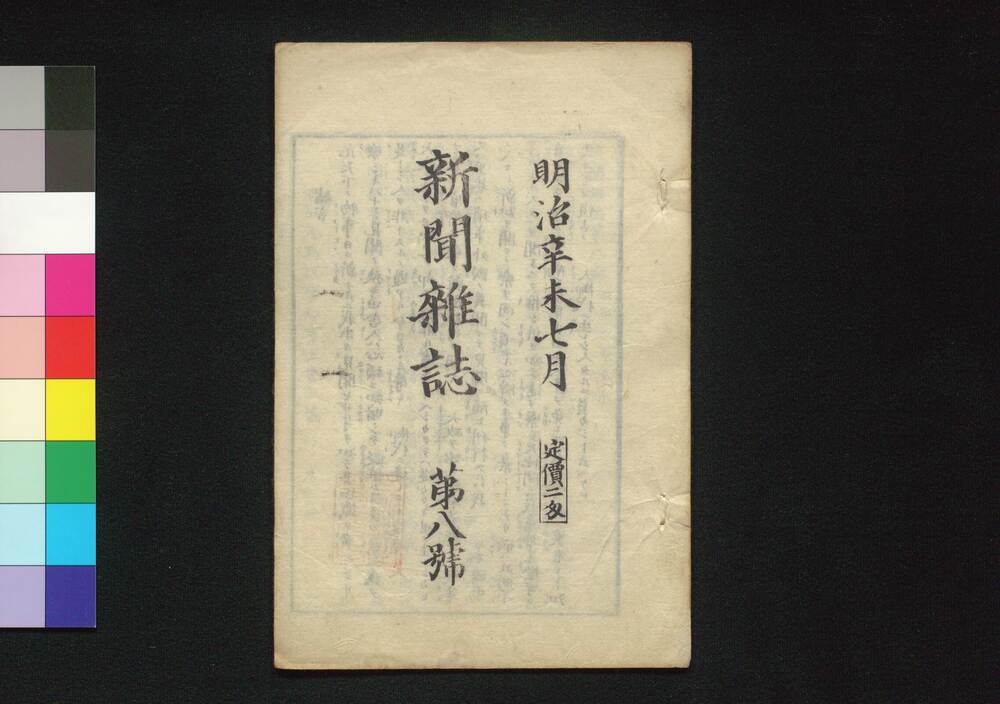 明治辛未七月
定價二匁
新聞雜誌
第八號